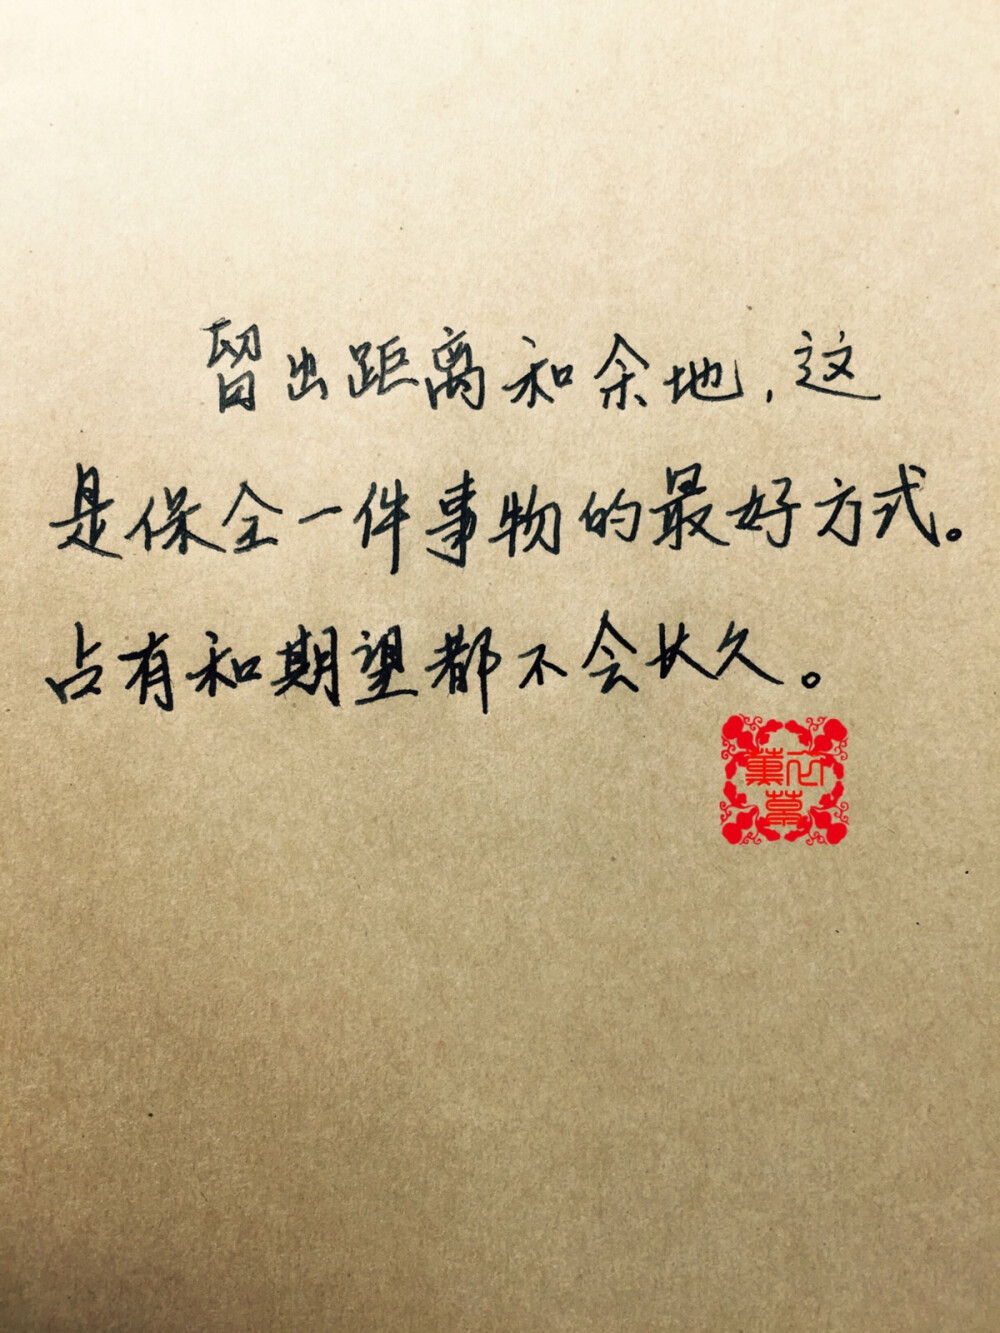 留出距离和余地，这
是保全一件事物的最好方式。
占有和期望都不会长久。